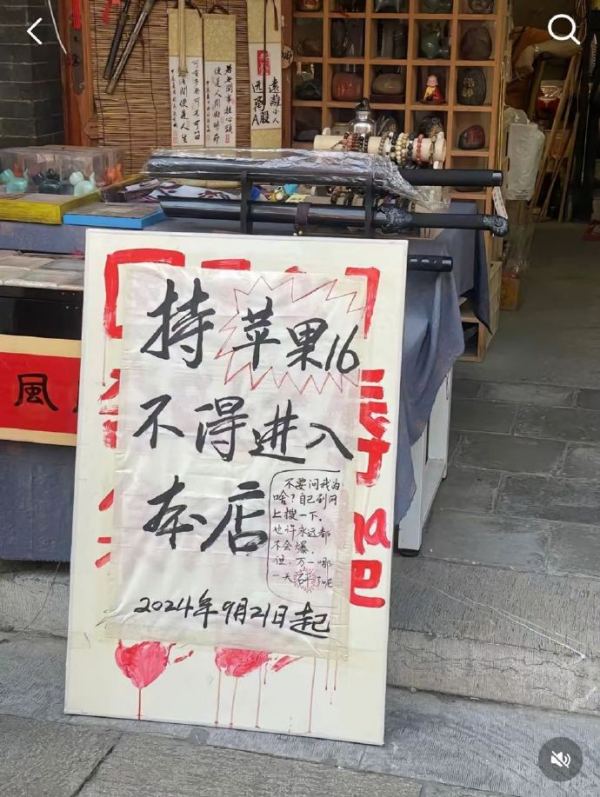 若无闲事挂心头
風
持苹果16
不得进入
本店
不要问我为
啥?自己到网
上搜一下。
也许永远都
不会爆,
但,万一哪
一天了呢
2024年9月21日起
吧